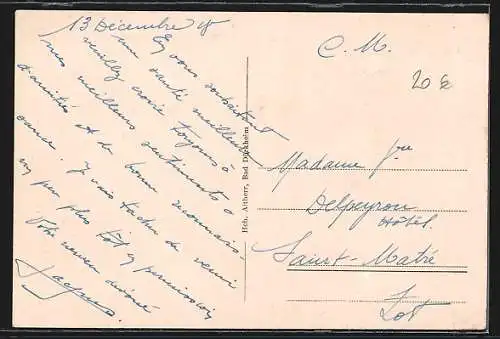 13 Décembre
En vous souhaitant
une santé meilleure
veuillez croire toujours à
mes meilleurs sentiments
d'amitiés et de bonne reconnais-
sance. Je vais tacher de venir
un peu plus tôt en permission
Votre neveu dévoué
Jacques.
Hch. Altherr, Bad Dürkheim
C. M.
20 €
Madame Vve
Delpeyrou
Hôtel.
Saint-Matré
Lot